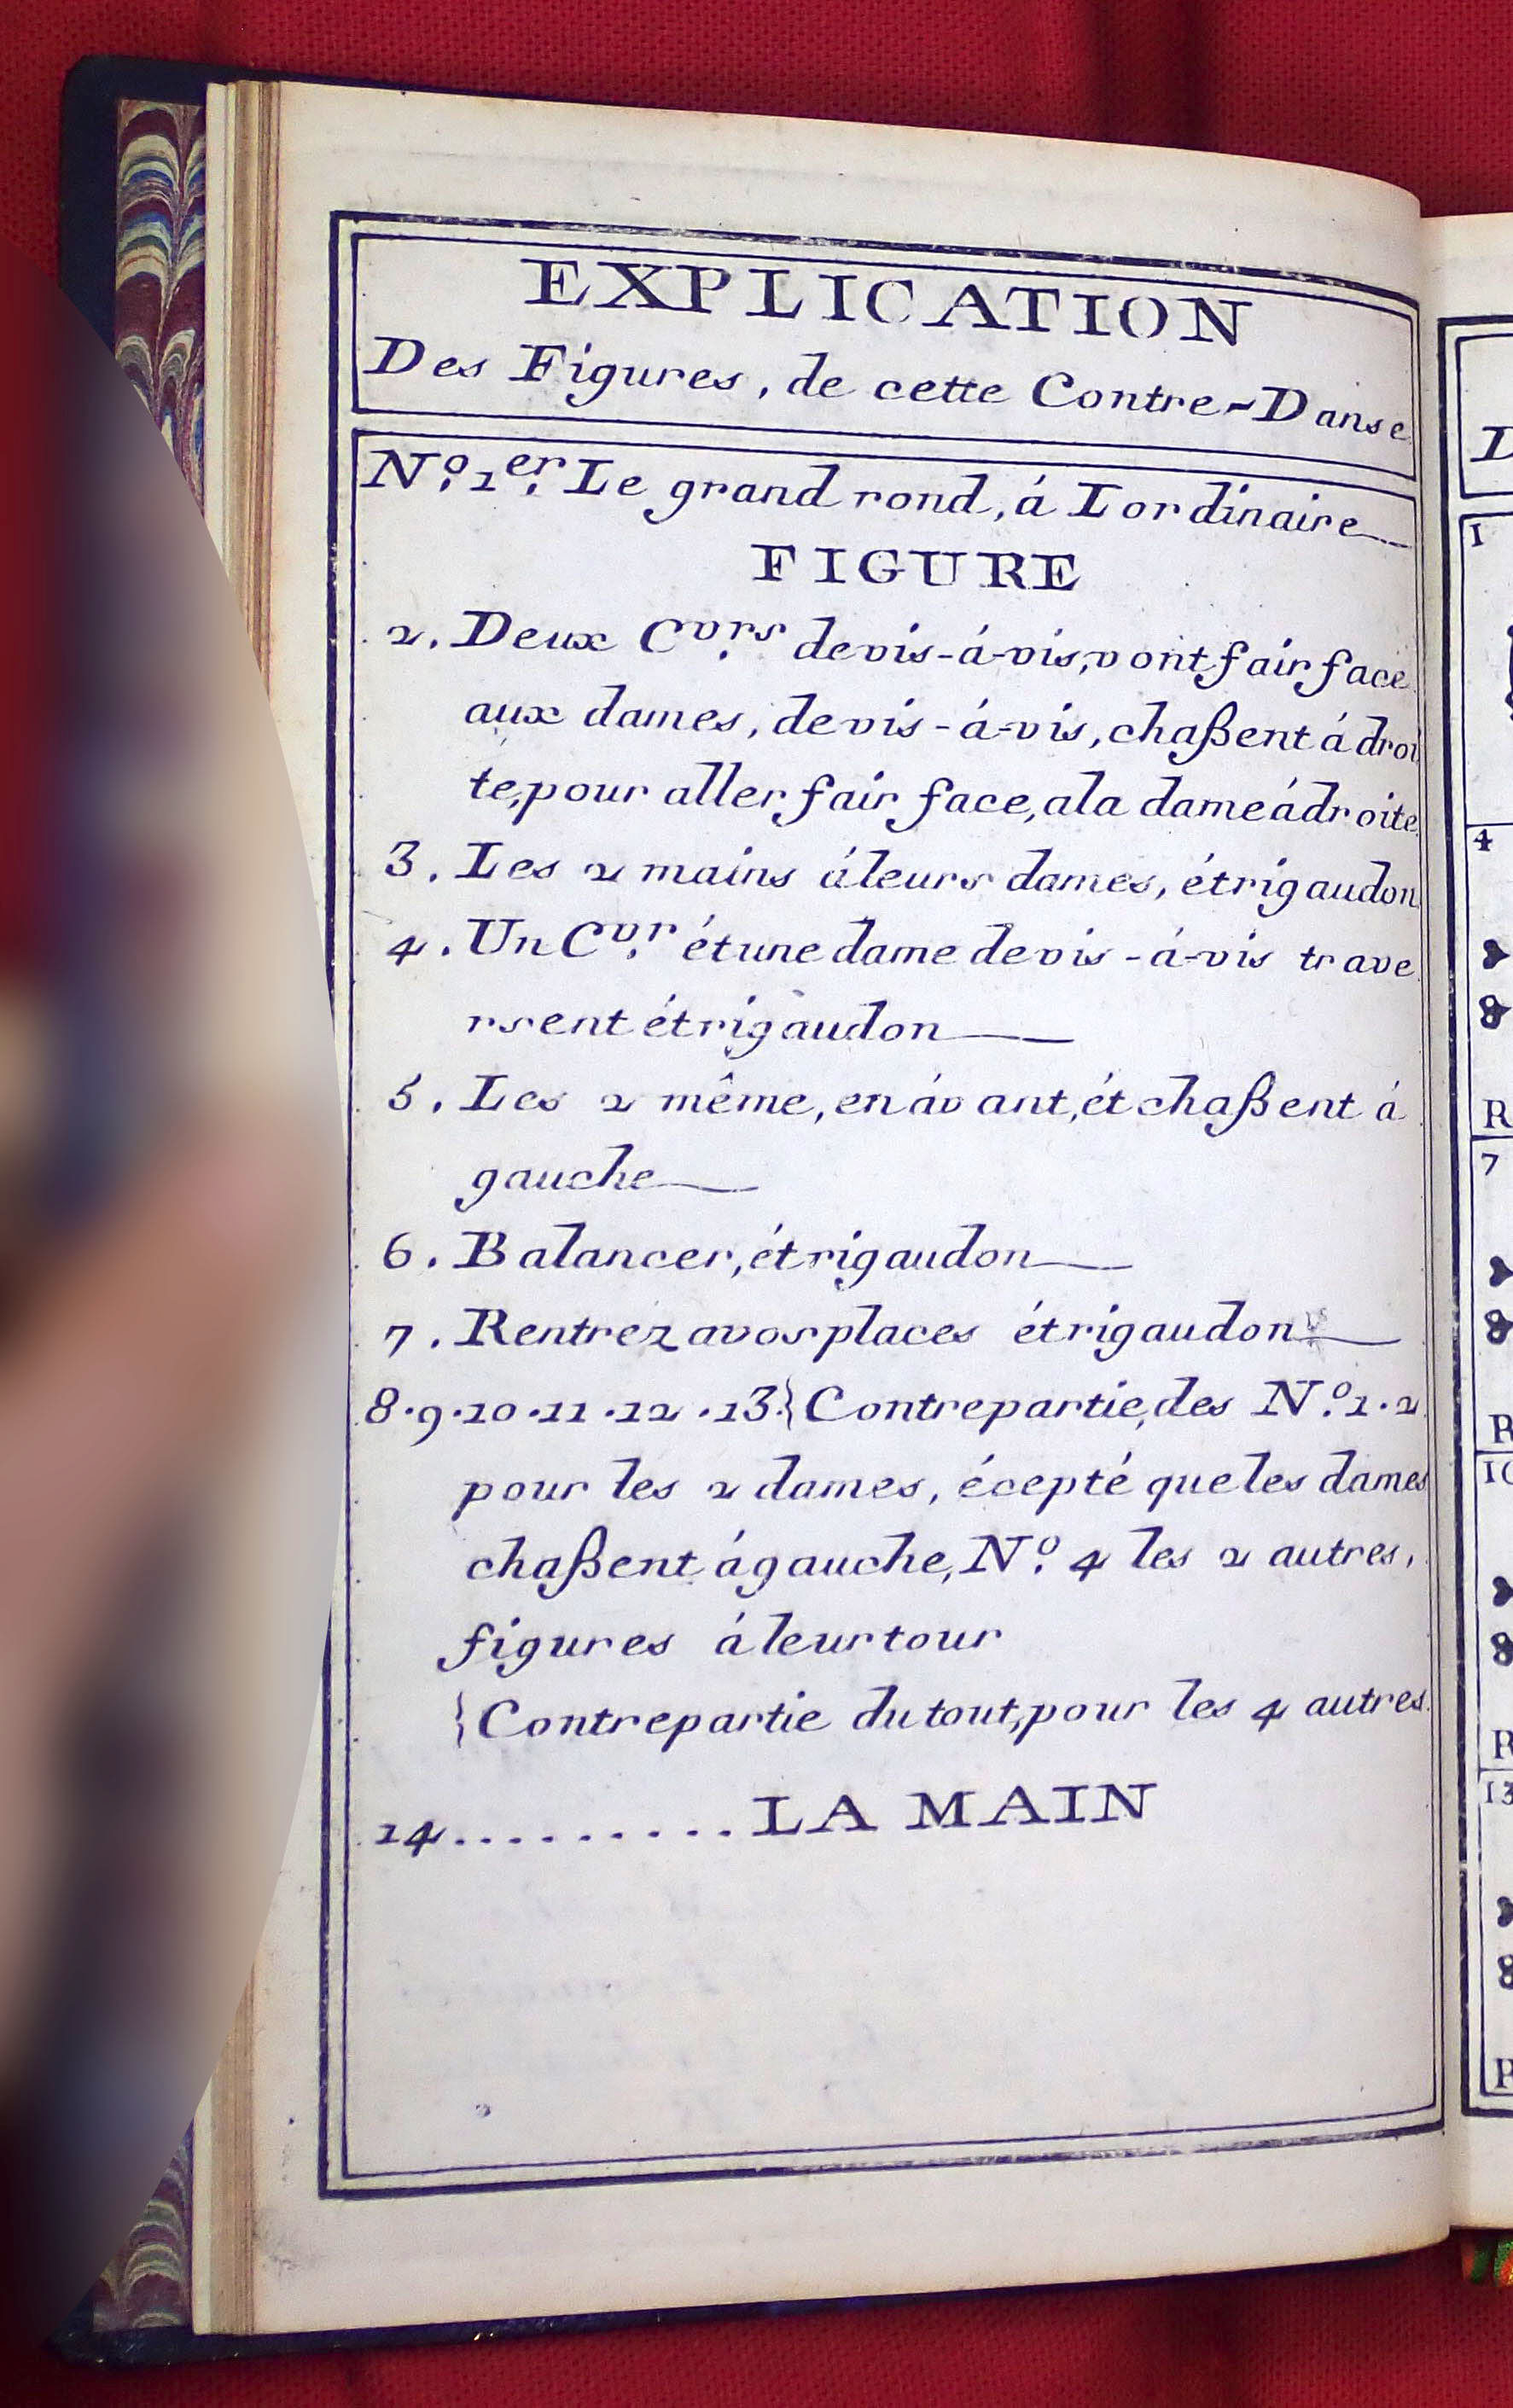 EXPLICATION
Des Figures, de cette Contre-Danse
N.º 1.er Le grand rond, á Lordinaire
FIGURE
2. Deux C.vrs de vis-á-vis, vont fair face
aux dames, de vis-á-vis, chaßent á droi
te, pour aller fair face, a la dame á droite
3. Les 2 mains á leurs dames, ét rigaudon
4. Un C.vr ét une dame de vis-á-vis trave
rsent ét rigaudon
5. Les 2 même, en ávant, ét chaßent á
gauche
6. Balancer, ét rigaudon
7. Rentrez a vos places ét rigaudon
8·9·10·11·12·13.} Contrepartie, des N.º 1·2
pour les 2 dames, écepté que les dames
chaßent á gauche, N.º 4 les 2 autres,
figures á leur tour
{Contrepartie du tout, pour les 4 autres.
14......... LA MAIN
1
4
8
R
7
8
R
8
13
8